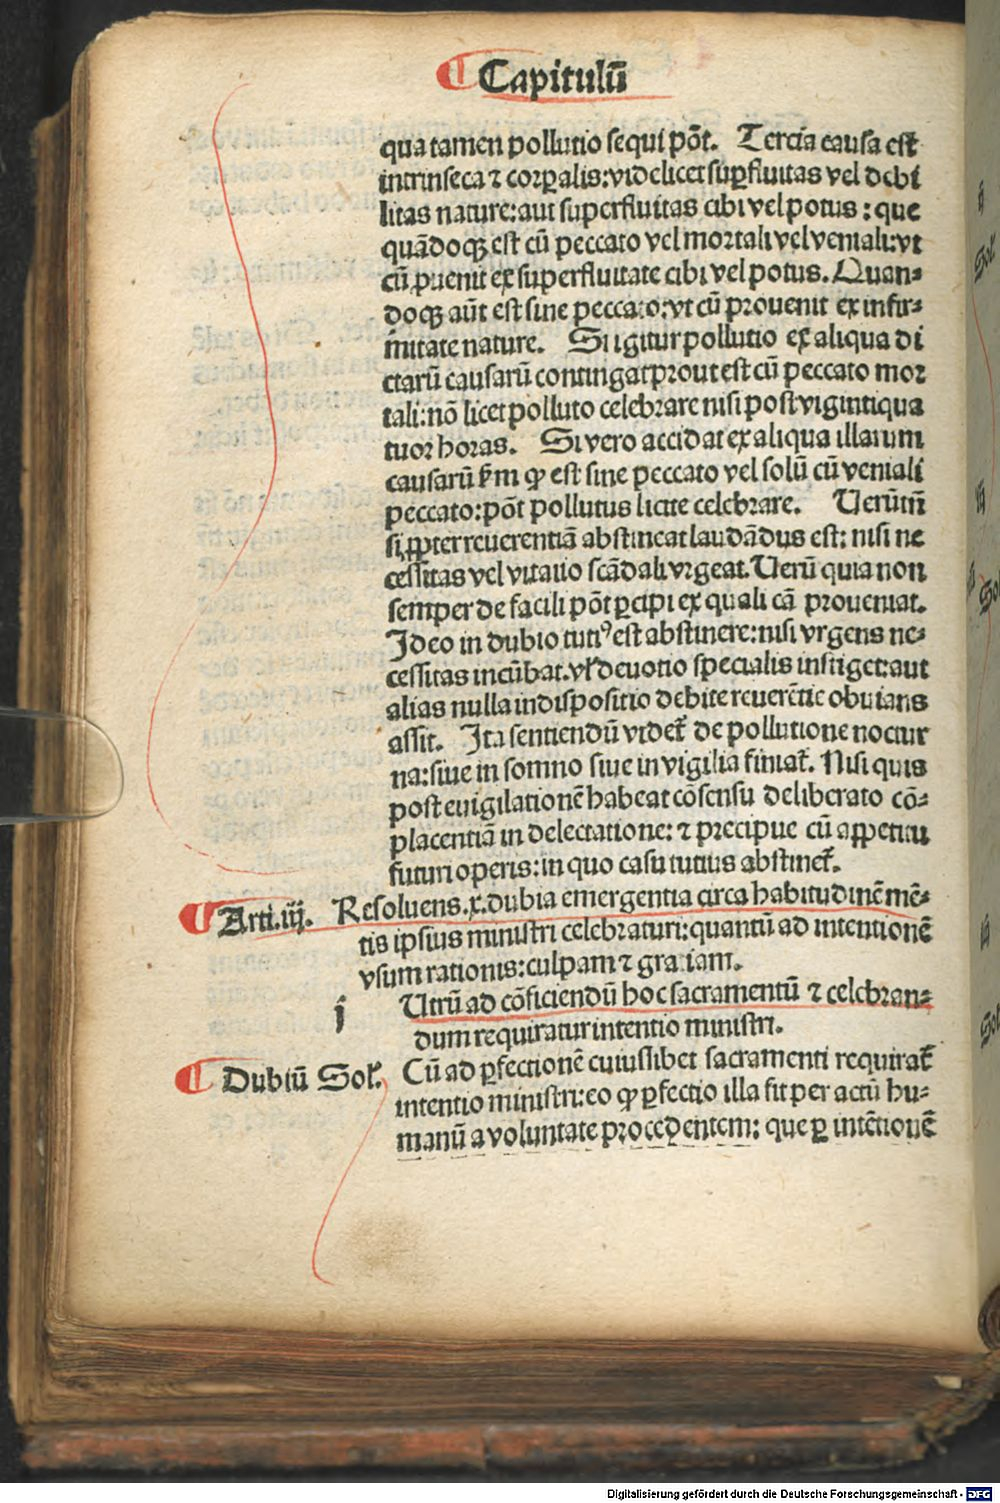 ¶ Capitulū
qua tamen pollutio sequi põt. Tercia causa est
intrinseca ⁊ corꝑalis: videlicet suꝑfluitas vel debi
litas nature: aut superfluitas cibi vel potus: que
quãdoqꝫ est cũ peccato vel mortali vel veniali: vt
cũ ꝓuenit ex superfluitate cibi vel potus. Quan-
doqꝫ aũt est sine peccato: vt cũ prouenit ex infir-
mitate nature. Si igitur pollutio ex aliqua di
ctarũ causarũ contingat prout est cũ peccato mor
tali: nõ licet polluto celebrare nisi post vigintiqua
tuor horas. Si vero accidat ex aliqua illarum
causarũ ẜm ꝙ est sine peccato vel solũ cũ veniali
peccato: põt pollutus licite celebrare. Uerũtñ
si ꝓpter reuerentiã abstineat laudãdus est: nisi ne
cessitas vel vitatio scãdali vrgeat. Uerũ quia non
semper de facili põt ꝑcipi ex quali cã proueniat.
Ideo in dubio tutiꝰ est abstinere: nisi vrgens ne-
cessitas incũbat. vł deuotio specialis instiget: aut
alias nulla indispositio debite reuerẽtie obuians
assit. Ita sentiendũ videt᷑ de pollutione noctur
na: siue in somno siue in vigilia finiat᷑. Nisi quis
post euigilationẽ habeat cõsensu deliberato cõ-
placentiã in delectatione: ⁊ precipue cũ appetitu
futuri operis: in quo casu tutius abstinet᷑.
¶ Arti.iij. Resoluens.x.dubia emergentia circa habitudinẽ mẽ-
tis ipsius ministri celebraturi: quantũ ad intentionẽ
vsum rationis: culpam ⁊ gratiam.
i Utrũ ad cõficiendũ hoc sacramentũ ⁊ celebran-
dum requiratur intentio ministri.
¶ Dubiũ Sol᷑. Cũ ad ꝑfectionẽ cuiuslibet sacramenti requirat᷑
intentio ministri: eo ꝙ ꝑfectio illa fit per actũ hu-
manũ a voluntate procedentem: que ꝑ intẽtionẽ
ij
Sol᷑
Sol
Sol
Digitalisierung gefördert durch die Deutsche Forschungsgemeinschaft - DFG